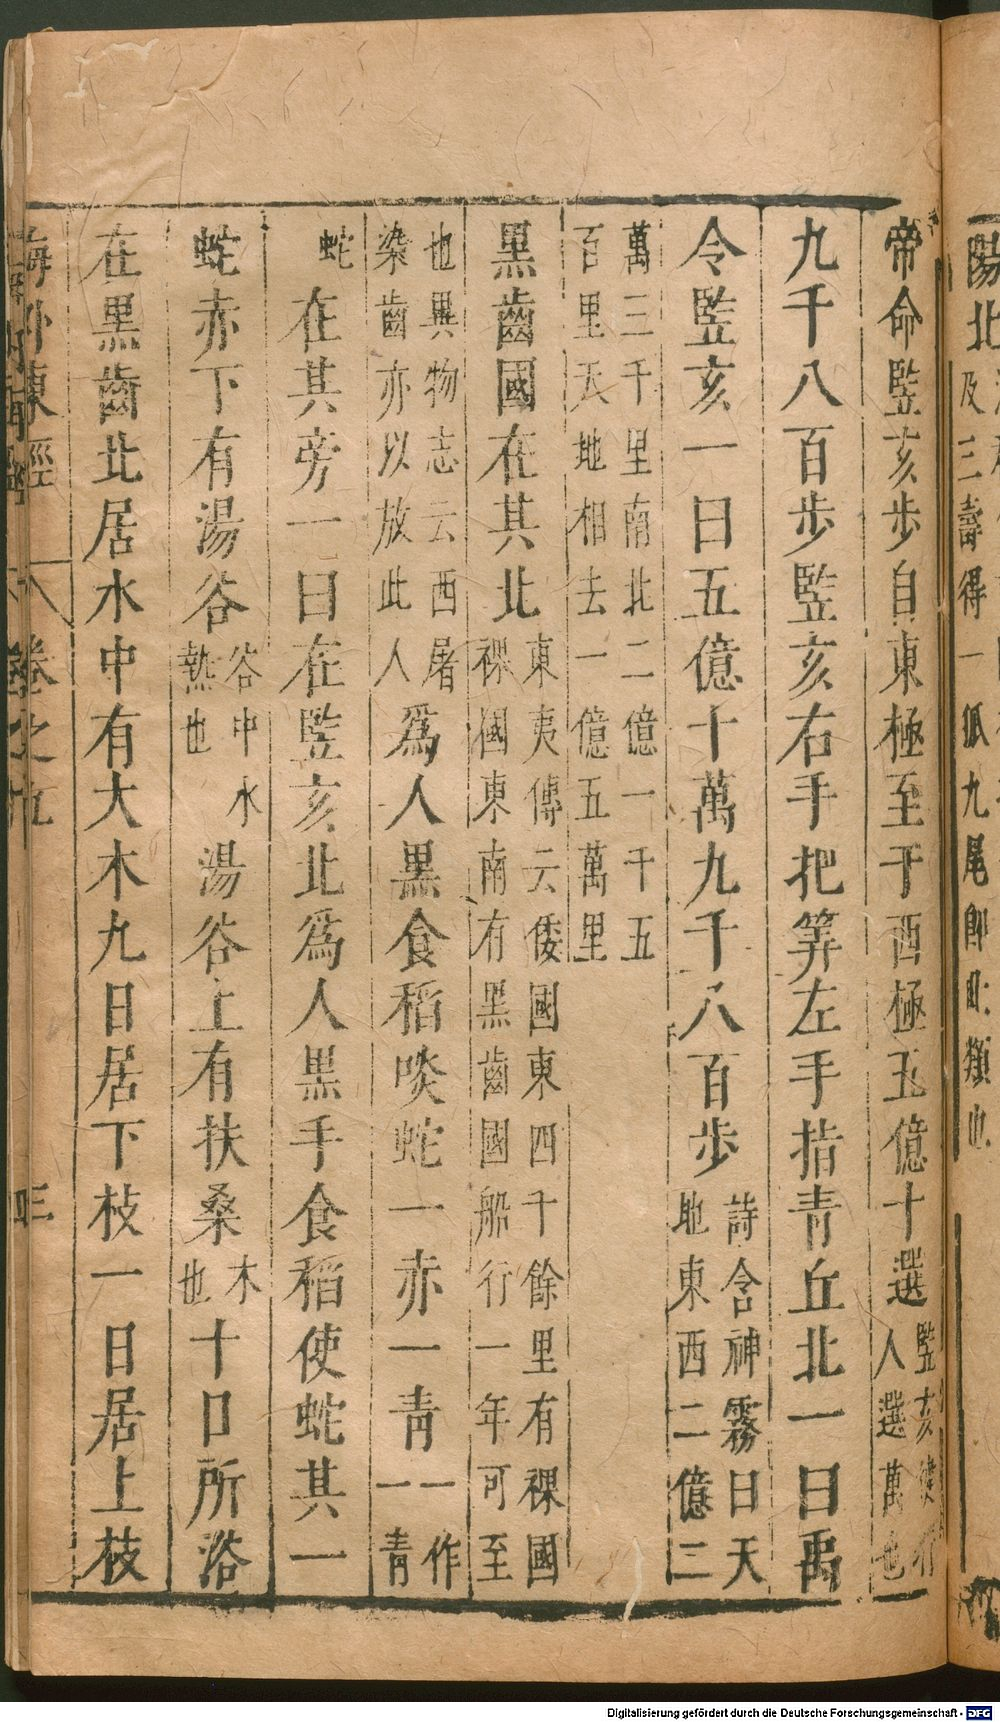 陽北
及三壽得一狐九尾卽此類也
帝命竪亥步自東極至于西極五億十選竪亥健行人選萬也
九千八百步竪亥右手把筭左手指青丘北一曰禹
令竪亥一曰五億十萬九千八百步詩含神霧曰天地東西二億三
萬三千里南北二億一千五百里天地相去一億五萬里
黑齒國在其北東夷傳云倭國東四千餘里有裸國裸國東南有黑齒國船行一年可至
也異物志云西屠染齒亦以放此人爲人黑食稻啖蛇一赤一青一作一青
蛇在其旁一曰在竪亥北爲人黑手食稻使蛇其一
蛇赤下有湯谷谷中水熱也湯谷上有扶桑木也十日所浴
在黑齒北居水中有大木九日居下枝一日居上枝
海外東經 卷之九 三
Digitalisierung gefördert durch die Deutsche Forschungsgemeinschaft - DFG